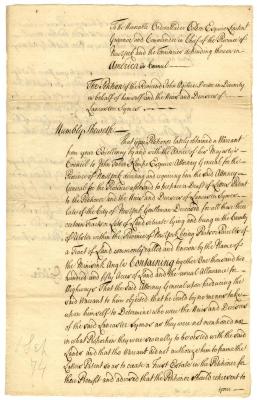 To His Honourable Cadwallader Colden Esquire Lieutenant
Governor and Commander in Chief of the Province of
New York and the Territories depending thereon in
America in Council
The Petition of the Reverend John Ogilvie Doctor in Divinity
in behalf of himself and the Heirs and Devisees of
Lancaster Symes
Humbly Sheweth
That your Petitioner lately obtained a Warrant
from your Excellency by and with the Advice of his Majesty's
Council to John Tabor Kempe Esquire Attorney General for the
Province of New York directing and requiring him the said Attorney
General for the Province aforesaid to prepare a Draft of Letters Patent
to the Petitioner and the Heirs and Devisees of Lancaster Symes
Late of the City of New York Gentleman Deceased for all those three
certain Tracts or Lots of Land situate lying and being in the County
of Ulster within the Province of New York being Part or Parcels of
a Tract of Land commonly called and known by the Name of
the Minisink Angle Containing together One thousand two
hundred and fifty Acres of Land and the usual Allowance for
Highways That the said Attorney General upon perusing the
Said Warrant to him objected that he could by no means take
upon himself to Determine who were the Heirs and Devisees
of the said Lancaster Symes as they were not mentioned nor
in what Proportion they were severally to be vested with the said
Lands and that the Warrant did not authorize him to frame the
Letters Patent so as to create a Trust Estate in the Petitioner for
their Benefit and advised that the Petitioner should represent to
your